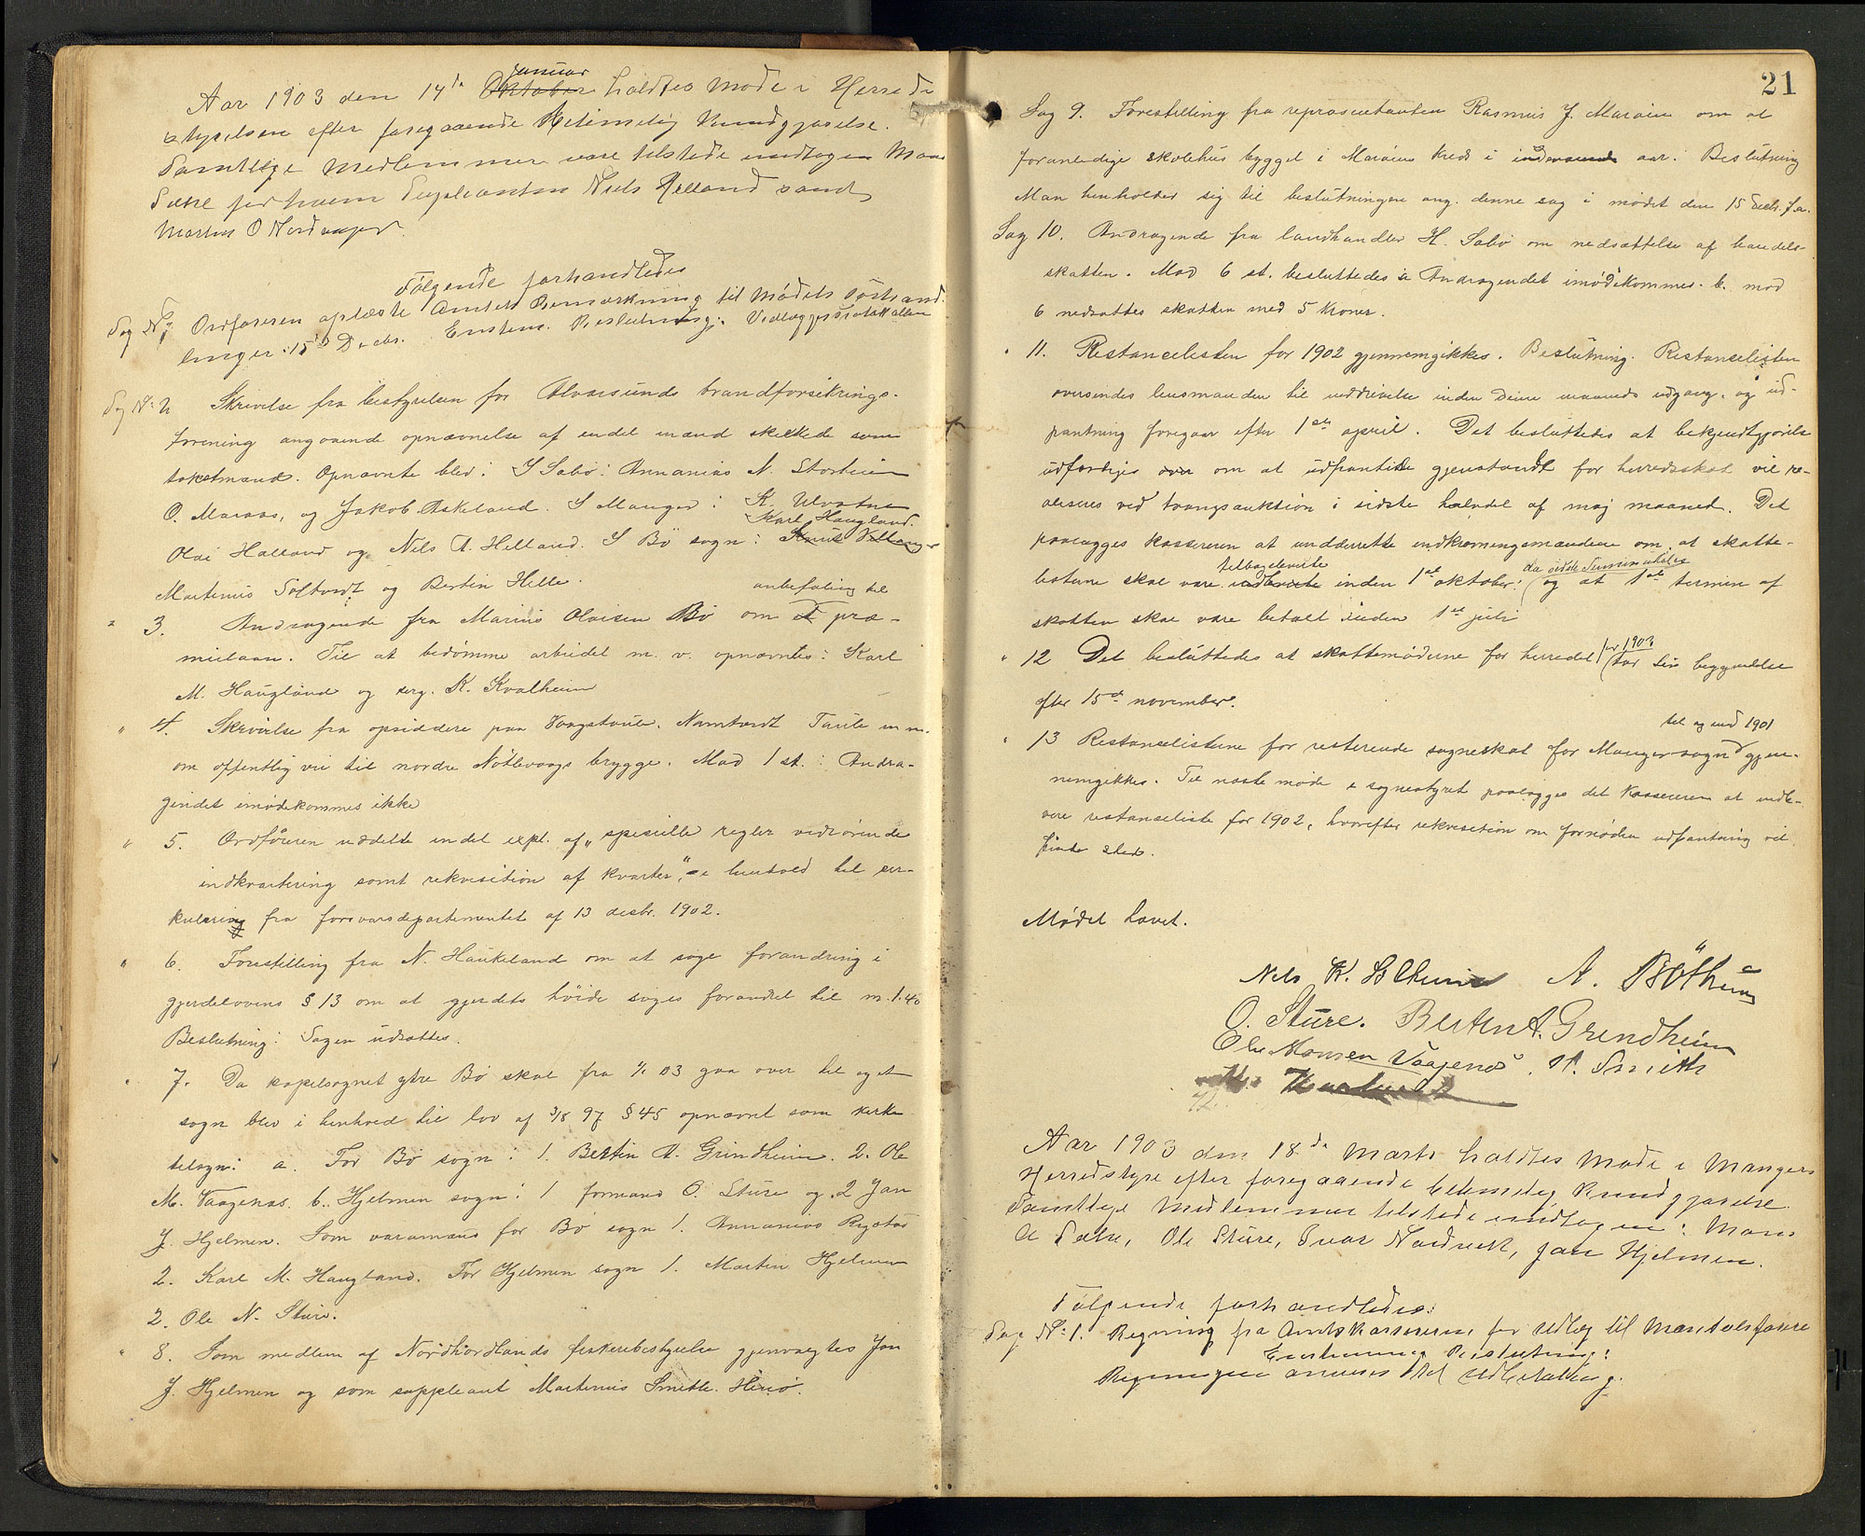 Januar
Aar 1903 den 14de Oktober holdtes Møde i Herreds
styrelsen efter foregaaende betimelig Kundgjørelse.
Samtlige Medlemmer vare tilstede undtagen Mons
Sætre for ham Supleanten Niels Helland samt
Martin O Nordanger.
Følgende forhandledes
Sag No 1 Ordføreren oplæste Amtets Bemærkning til Mødets Forhand-
linger 15de Decbr. Enstem. Beslutning: Vedlægges
Sag No: 2 Skrivelse fra bestyrelsen for Alversunds brandforsikrings-
forening angaaende opnævnelse af endel mænd skikkede som
takstmænd. Opnævnte blev: I Sæbø: Annanias N. Storheim
O. Maraas, og Jakob Askeland. I Manger: K. Ulvatne
Karl Haugland.
Olai Halland og Nels A. Helland. I Bø sogn: Knut Villanger
Martinus Soltvedt og Bertin Helle.
anbefaling til
" 3. Andragende fra Marius Olaisen Bø om et præ-
mielaan. Til at bedømme arbeidet m. v. opnævntes: Karl
M. Haugland og serg. K. Kvalheim
" 4. Skrivelse fra opsiddere paa Vaagstaule, Namtvedt Taule m. m.
om offentlig vei til nordre Nøtlevaags brygge. Mod 1 st.: Andra-
gendet imødekommes ikke
" 5. Ordføreren uddelte endel expl. af „spesielle regler vedrørende
indkvartering samt rekvisition af kvarter", i henhold til sir-
kulering fra forsvarsdepartementet af 13 desbr. 1902.
" 6. Forestilling fra N. Haukeland om at søge forandring i
gjerdelovens § 13 om at gjerdets høide søges forandret til m. 1.40
Beslutning: Sagen udsættes.
" 7. Da kapelsognet ytre Bø skal fra 1/1 03 gaa over til eget
sogn blev i henhold til lov af 3/8 97 § 45 opnævnt som kirke
tilsyn: a. For Bø sogn: 1. Bertin A. Grindheim. 2. Ole
M. Vaagenæs. b. Hjelmen sogn: 1 formand O. Sture og 2 Jan
J. Hjelmen. Som varamænd for Bø sogn 1. Annanias Rogstad
2. Karl M. Haugland. For Hjelmen sogn 1. Martin Hjelmen
2. Ole N. Sture.
" 8. Som medlem af Nordhordlands fiskeribestyrelse gjenvalgtes Jan
J. Hjelmen og som suppleant Martinus Smith. Herø.
21
Sag 9. Forestilling fra repræsentanten Rasmus J. Marøen om at
foranledige skolehus bygget i Marøens kreds i indeværende aar: Beslutning
Man henholder sig til beslutningen ang. denne sag i mødet den 15 decbr. f. a.
Sag 10. Andragende fra landhandler H. Sæbø om nedsættelse af handels-
skatten. Mod 6 st. besluttedes a Andragendet imødekommes. b. mod
6 nedsættes skatten med 5 Kroner.
" 11. Restancelisten for 1902 gjennemgikkes. Beslutning. Restancelisten
oversendes lensmanden til inddrivelse inden denne maaneds udgang, og ud-
pantning foregaar efter 1ste april. Det besluttedes at bekjendtgjørelse
udfærdiges om at udpantede gjenstande for herredsskat vil re-
aliseres ved tvangsauktion i sidste halvdel af maj maaned. Det
paalægges kassereren at underrette indkrævningsmændene om, at skatte-
tilbageleverte da sidste Termin utløper
listerne skal være indleverte inden 1ste oktober: og at 1ste termin af
skatten skal være betalt inden 1ste juli
for 1903
" 12 Det besluttedes at skattemøderne for herredet tar sin begyndelse
efter 15de november.
til og med 1901
" 13 Restancelisterne for resterende sogneskat for Manger sogn gjen-
nemgikkes. Til næste møde i sognestyret paalægges det Kassereren at indle-
vere restanceliste for 1902, hvorefter rekvisition om fornøden udpantning vil
finde sted.
Mødet hævet.
A. Böthun
O. Sture. Bertin A. Grindheim
Ole Monsen Vaagenes. M. Smith
Aar 1903 den 18de Marts holdtes Møde i Mangers
Herredstyre efter foregaaende betimelig Kundgjørelse
Samtlige Medlemmer tilstede undtagen: Mons
A Sætre, Ole Sture, Ivar Nordvik, Jan Hjelmen.
Følgende forhandledes:
Sag No: 1. Regning fra Amtskassereren for Udlæg til Mandtalsførere
Enstemmig Beslutning:
Regningen anvises til Udbetaling.